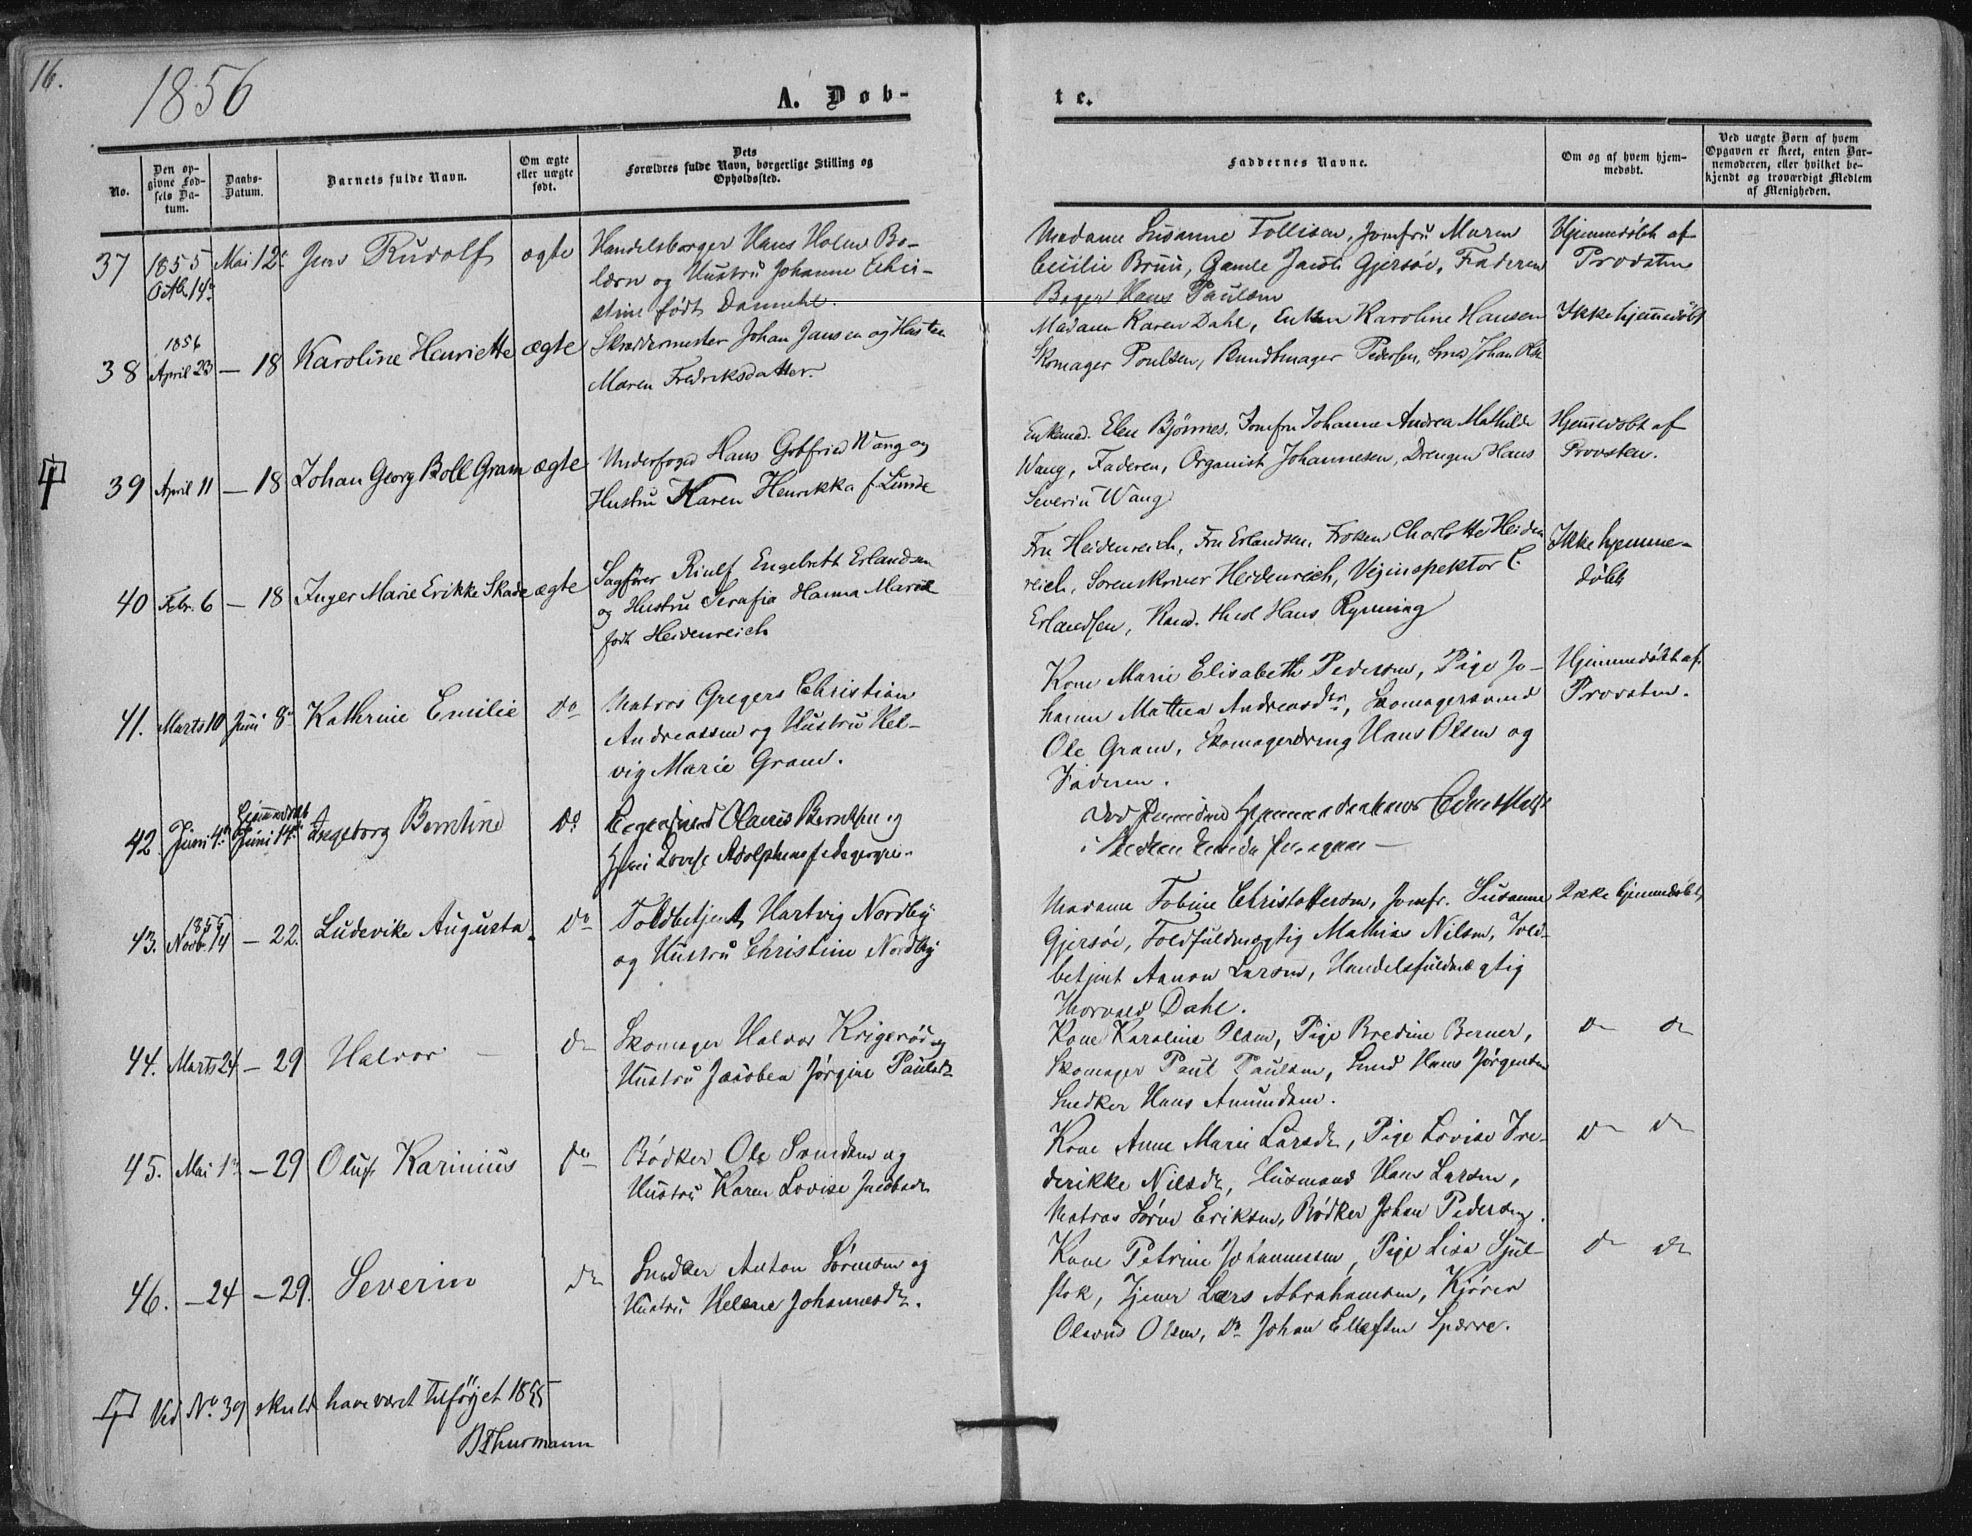 16.
1856
A. Døb-
te.
No.
Den op-
givne Fød-
sels Da-
tum.
Daabs-
Datum.
Barnets fulde Navn.
Om ægte
eller uægte
født.
Dets
Forældres fulde Navn, borgerlige Stilling og
Opholdssted.
Faddernes Navne.
Om og af hvem hjem-
medøbt.
Ved uægte Børn af hvem
Opgaven er skeet, enten Bar-
nemoderen, eller hvilket be-
kjendt og troværdigt Medlem
af Menigheden.
37
1855
Octb. 14
Mai 12
Jens Rudolf
ægte
Handelsborger Hans Holm Bo-
lærn og Hustru Johanne Chri-
stine født
Madame Susanne Tollisen, Jomfru Maren
Cecilie Bruu, Gamle Jacob Gjersøe, Faderen
Bager Hans Paulsen
Hjemmedøbt af
Provsten
38
1856
April 23
— 18
Karoline Henriette
ægte
Skræddermester Johan Jansen og Hustru
Maren Fredriksdatter.
Madam Karen Dahl, Enken Karoline Hansen
Skomager Poulsen, Bundtmager Pedersen, Johan
Ikke hjemmedøbt
39
April 11
— 18
Johan Georg Boll Gram
ægte
Underfoged Hans Gotfried Wang og
Hustru Karen Henrikka f. Lunde
Elen Bjørnes, Jomfru Johanne Andrea Mathilde
Wang, Faderen, Organist Johannesen, Drengen Hans
Severin Wang
Hjemmedøbt af
Provsten.
40
Febr. 6
— 18
Inger Marie Erikke Skade
ægte
Sagfører Rinlf Engebrett Erlandsen
og Hustru Serafia Hanna Marie
født Heidenreich
Fru Heidenreich, Fru Erlandsen, Frøken Charlotte Heiden
reich, Sorenskriver Heidenreich, Veiinspektor C.
Erlandsen, Kand. theol Hans Rynning
Ikke hjemme-
døbt
41.
Marts 10
Juni 8
Kathrine Emilie
do
Matros Gregers Christian
Andreassen og Hustru Hel-
vig Marie Gram.
Kone Marie Elisabeth Pedersen, Pige Jo-
hanne Mathea Andreasdtr, Skomagersvend
Ole Gram, Skomagerdreng Hans Olsen og
Faderen.
Hjemmedøbt af
Provsten.
42
Juni 4
Juni 14
Ingeborg Berntine
do
Olaus Berntsen og
43.
1855
Novbr. 14
— 22.
Ludevike Augusta
do
Toldbetjent Hartvig Nordby
og Hustru Christine Nordby
Madame Tobine Christoffersen, Jomfr. Susanne
Gjersøe, Toldfuldmægtig Mathias Nilsen, Told-
betjent Aanon Larsen, Handelsfuldmægtig
Thorvald Dahl.
Ikke hjemmedøbt
44.
Marts 24
— 29
Halvor
do
Skomager Halvor Krigerød og
Hustru Jacobea Jørgine Paulsdtr
Kone Karoline Olsen, Pige Bredine Berner,
Skomager Paul Paulsen, Smed Hans Jørgensen
Snedker Hans Amundsen.
do do
45.
Mai 1
— 29
Oluf Karinius
do
Bødker Ole Svendsen og
Hustru Karen Lovise Jacobsdtr
Kone Anne Marie Larsdtr, Pige Lovise Fre-
derikke Nilsdtr, Husmand Hans Larsen,
Matros Søren Eriksen, Bødker Johan Pedersen.
do do
46.
— 24
— 29.
Severin
do
Snedker Anton Sørensen og
Hustru Helene Johannesdtr.
Kone Petrine Johannessen, Pige Lisa Sjul-
stok, Tjener Lars Abrahamsen, Kjører
Olavus Olsen, do Johan Ellefsen Sperre.
do do
Ved No. 39 skuld have været tilføyet 1855
B Thurmann